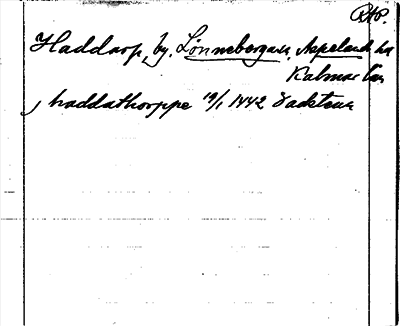 RAP.
Haddarp, by, Lönneberga sn, Aspelands hd
Kalmar län
j haddathorppe 19/1 1442 Vadstena